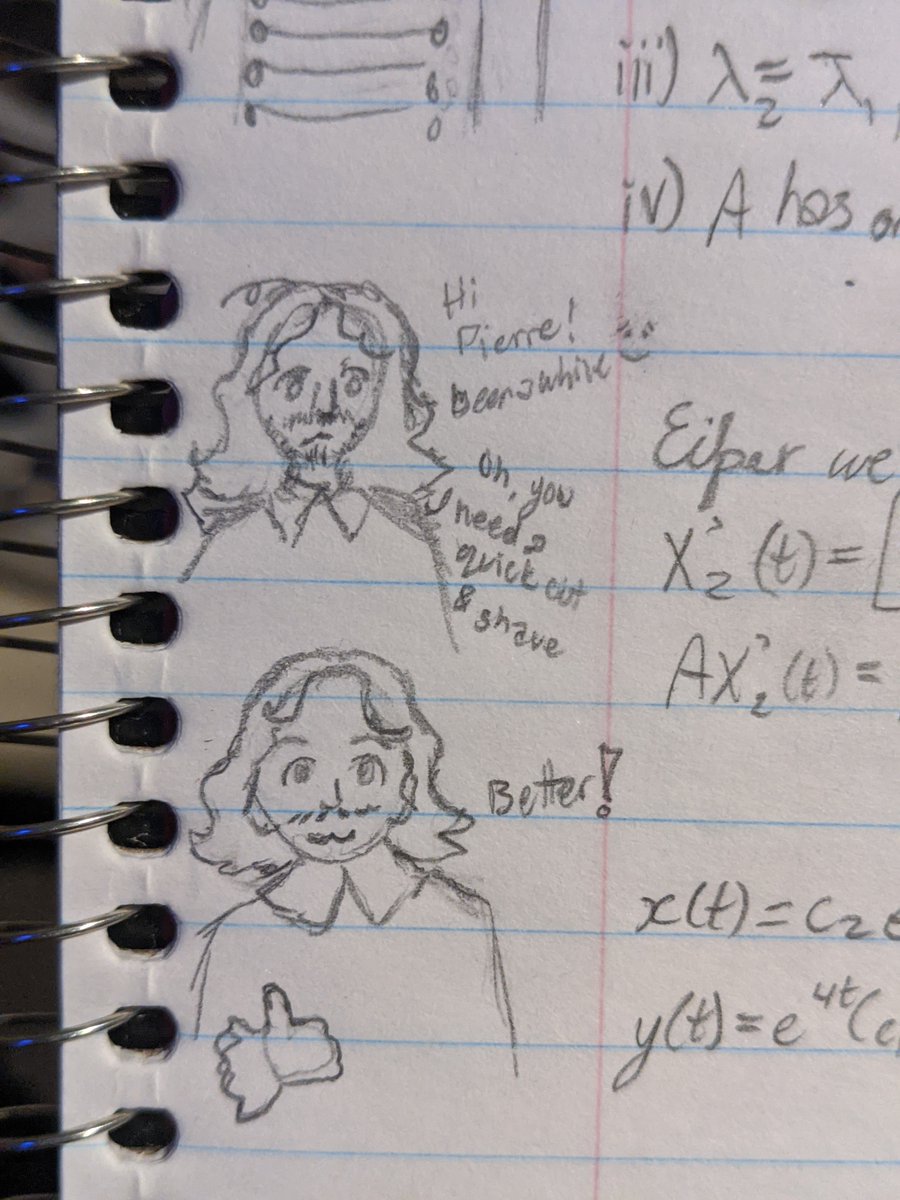 iii) λ₂ = λ̄₁
iv) A has
Hi
Pierre!
Been a while
Oh, you
need a
quick cut
& shave
we
X₂(t) = [
AX₂(t) =
Better!
x(t) = c₂ e
y(t) = e⁴ᵗ(c₁